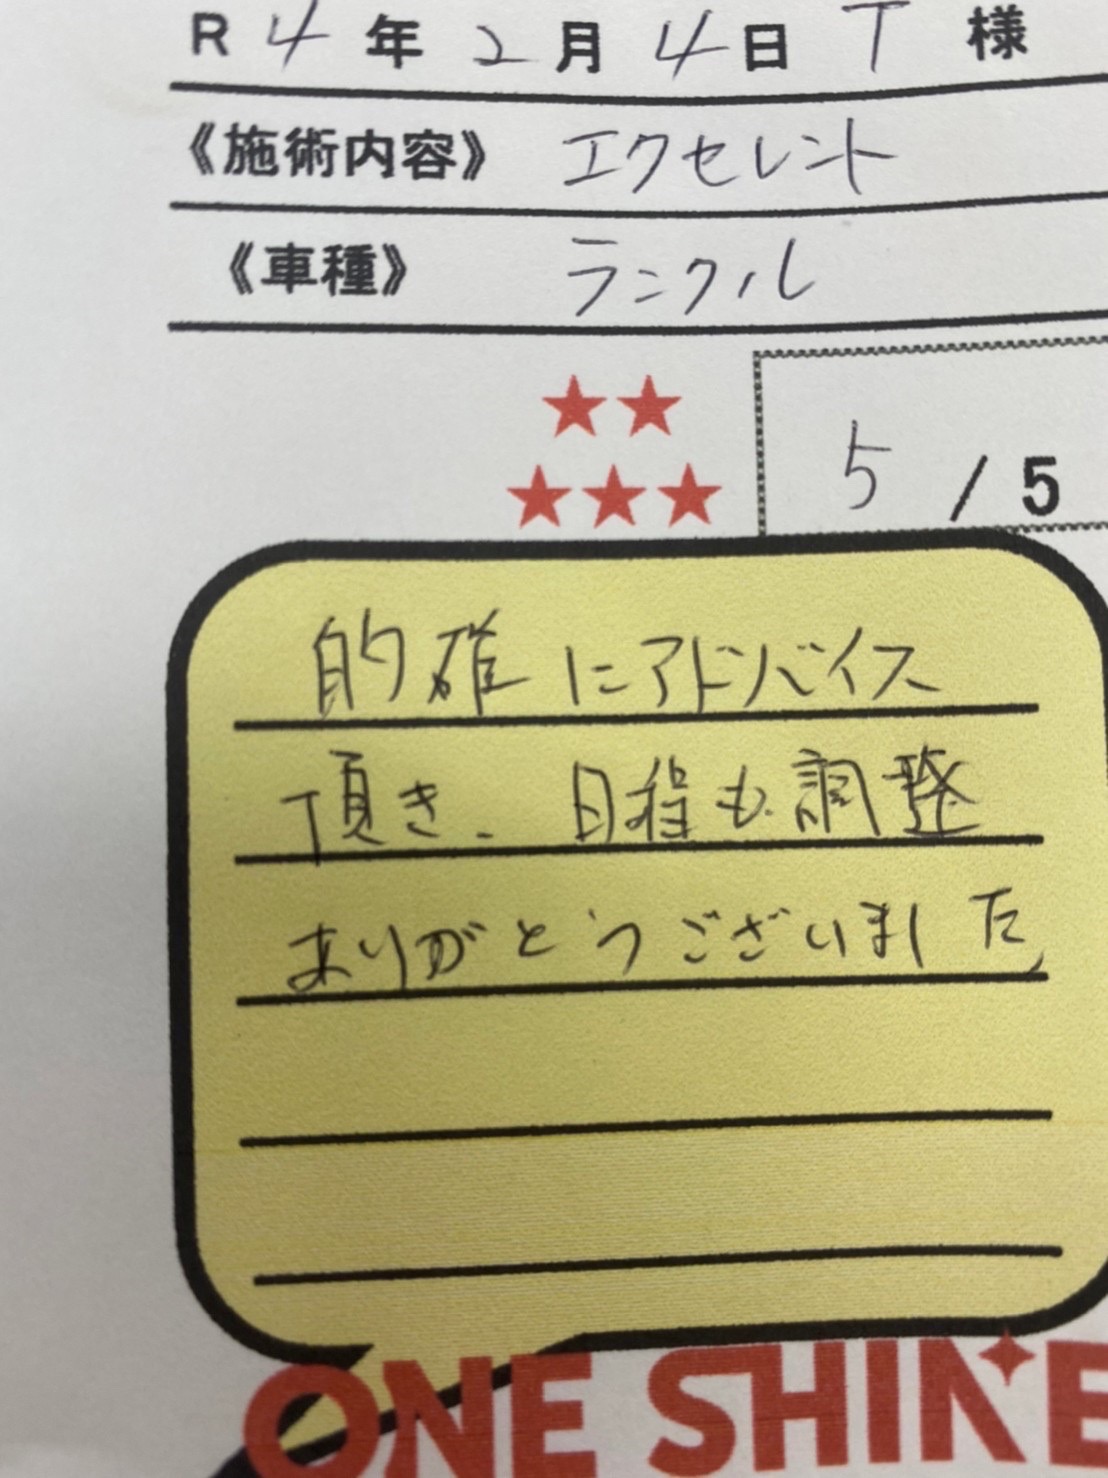 R 4 年 2 月 4 日 T 様
《施術内容》 エクセレント
《車種》 ランクル
★★
★★★
5 / 5
的確にアドバイス
頂き、日程も調整
ありがとうございました
ONE SHINE